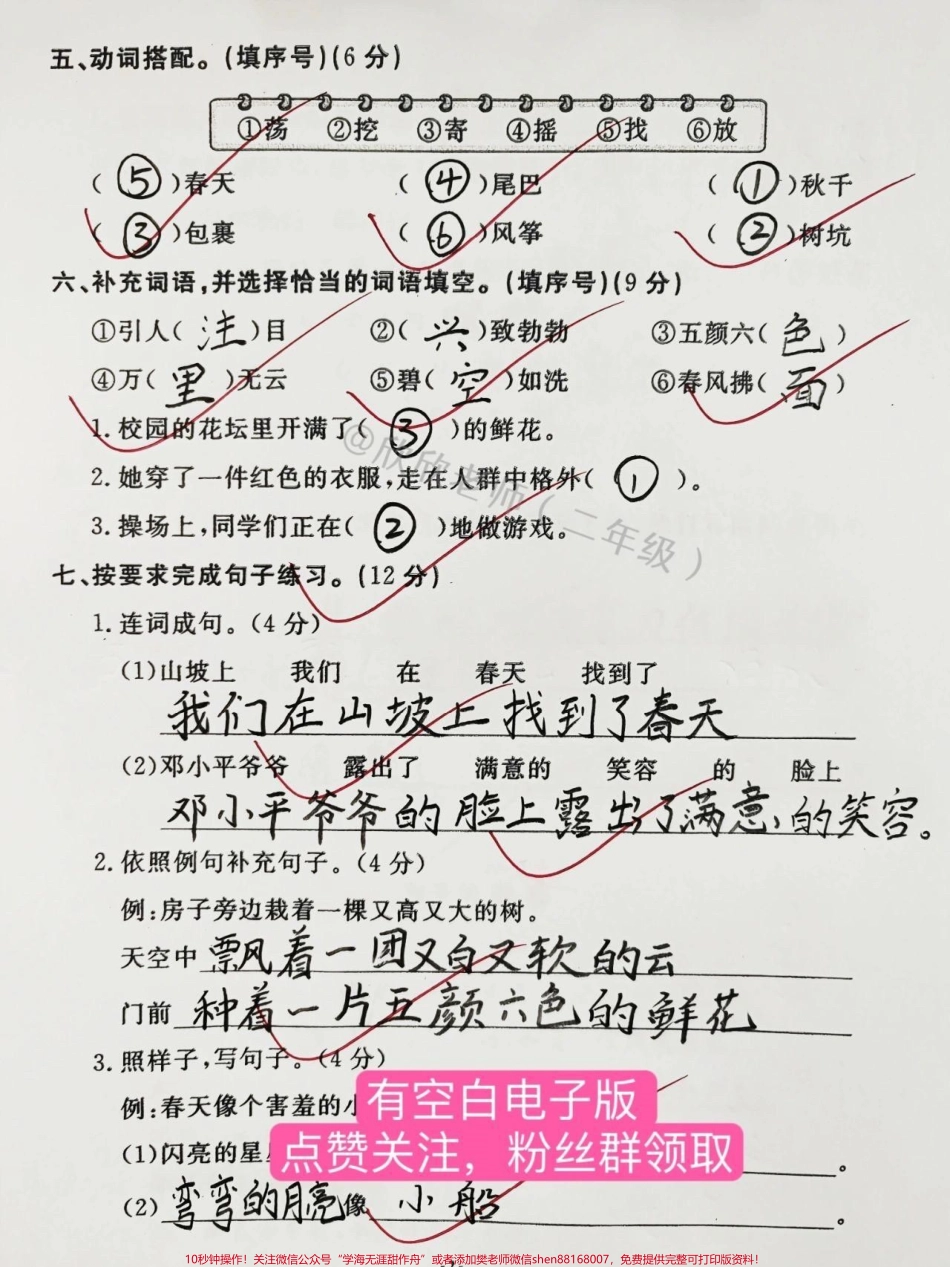 五、动词搭配。(填序号)(6分)
①荡 ②挖 ③寄 ④摇 ⑤找 ⑥放
( ⑤ )春天 ( ④ )尾巴 ( ① )秋千
( ③ )包裹 ( ⑥ )风筝 ( ② )树坑
六、补充词语,并选择恰当的词语填空。(填序号)(9分)
①引人( 注 )目 ②( 兴 )致勃勃 ③五颜六( 色 )
④万( 里 )无云 ⑤碧( 空 )如洗 ⑥春风拂( 面 )
1.校园的花坛里开满了( ③ )的鲜花。
@欣欣老师(二年级)
2.她穿了一件红色的衣服,走在人群中格外( ① )。
3.操场上,同学们正在( ② )地做游戏。
七、按要求完成句子练习。(12分)
1.连词成句。(4分)
(1)山坡上 我们 在 春天 找到了
我们在山坡上找到了春天
(2)邓小平爷爷 露出了 满意的 笑容 的 脸上
邓小平爷爷的脸上露出了满意的笑容。
2.依照例句补充句子。(4分)
例:房子旁边栽着一棵又高又大的树。
天空中飘着一团又白又软的云
门前种着一片五颜六色的鲜花
3.照样子,写句子。(4分)
例:春天像个害羞的小
有空白电子版
(1)闪亮的星 。
点赞关注，粉丝群领取
(2)弯弯的月亮像 小船 。
10秒钟操作！关注微信公众号“学海无涯甜作舟”或者添加樊老师微信shen88168007，免费提供完整可打印版资料！